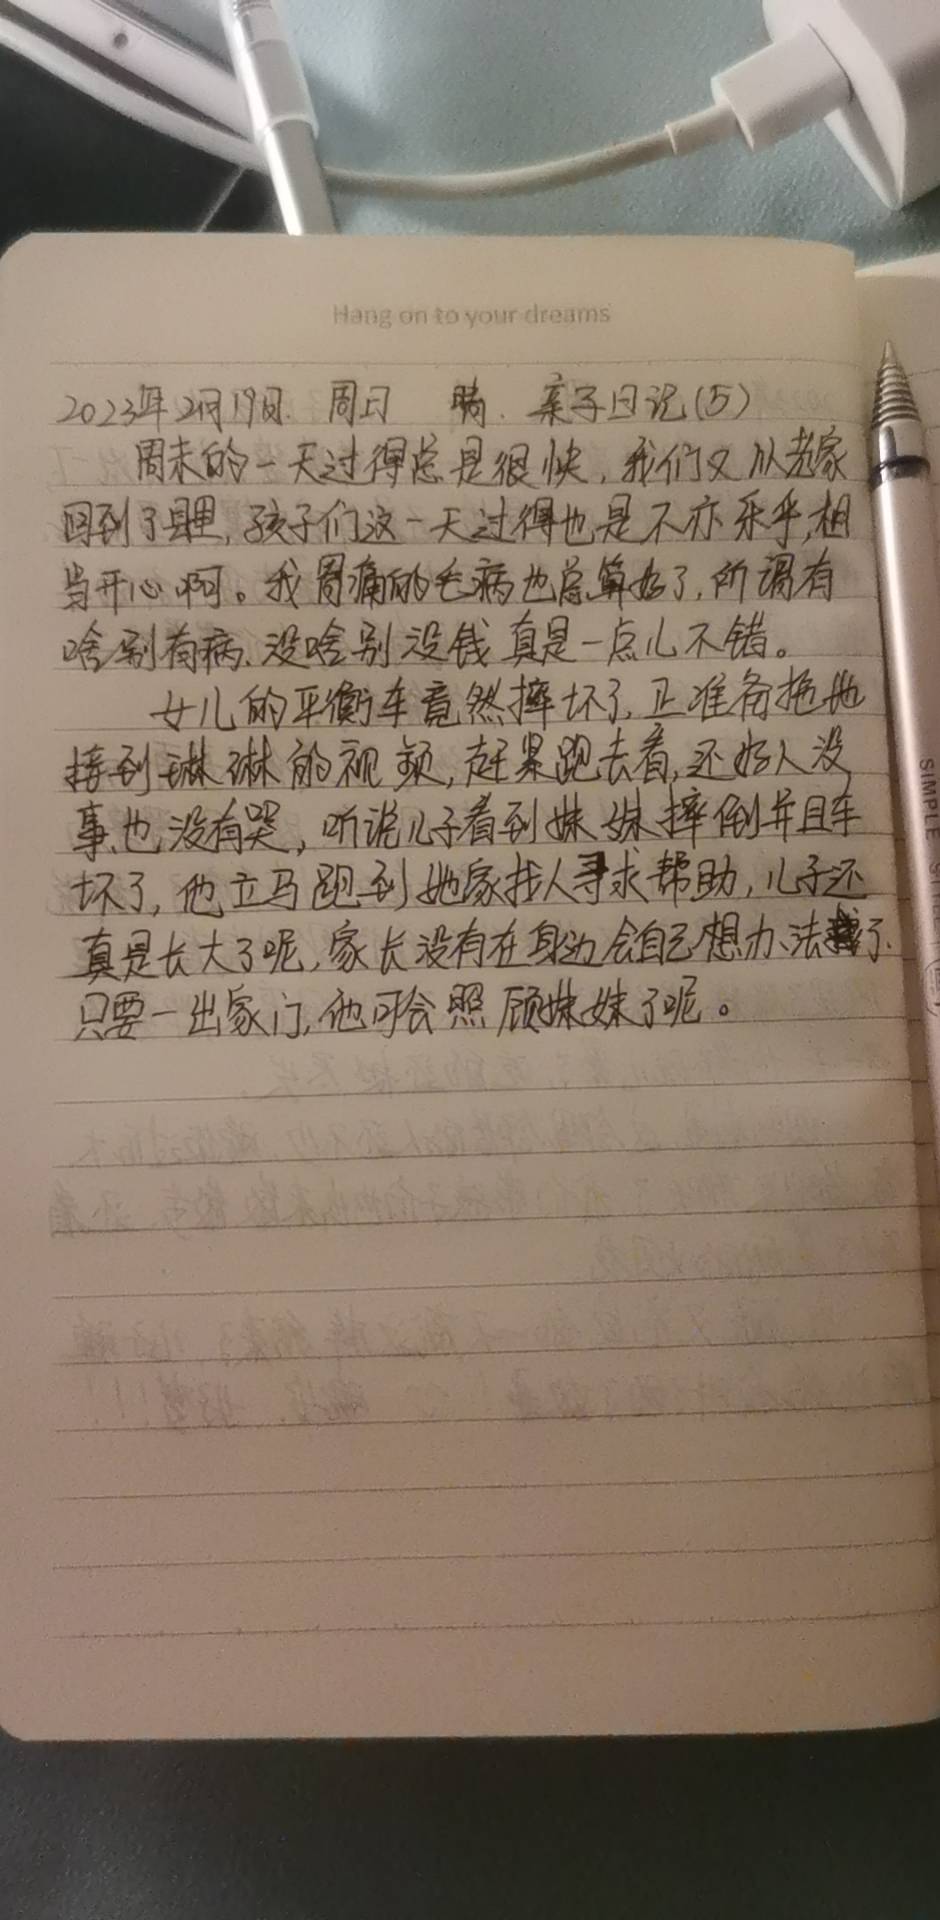 Hang on to your dreams
2023年2月19日. 周日 晴. 亲子日记(5)
周末的一天过得总是很快, 我们又从老家
回到了县里, 孩子们这一天过得也是不亦乐乎, 相
当开心啊。我胃痛的毛病也总算好了, 所谓有
啥别有病、没啥别没钱真是一点儿不错。
女儿的平衡车竟然摔坏了, 正准备拖地
接到琳琳的视频, 赶紧跑去看, 还好人没
事, 也没有哭, 听说儿子看到妹妹摔倒并且车
坏了, 他立马跑到她家找人寻求帮助, 儿子还
真是长大了呢, 家长没有在身边会自己想办法了.
只要一出家门, 他可会照顾妹妹了呢。
SIMPLE